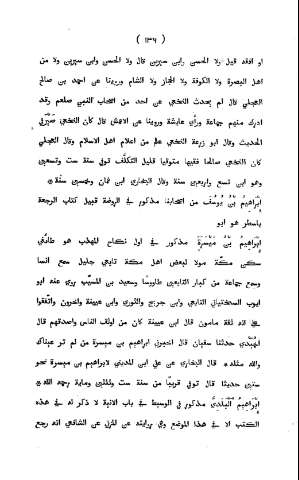 (١٣٦)
او افقه قيل ولا الحسن وابن سيرين قال ولا الحسن وابن سيرين ولا من
اهل البصرة ولا الكوفة ولا الحجاز ولا الشام وروينا عن احمد بن صالح
العجلي قال لم يحدث النخعي عن احد من اصحاب النبي صلعم وقد
ادرك منهم جماعة وراى عايشة وروينا عن الاعمش قال كان النخعي صَيْرَفِيَّ
الحديث وقال ابو زرعة النخعي علم من اعلام اهل الاسلام وقال العجلي
كان النخعي صالحا فقيها متوقيا قليل التكلف توفي سنة ست وتسعين
وهو ابن تسع واربعين سنة وقال البخاري ابن ثمان وخمسين سنة⁕
إِبْرَاهِيمُ بْنُ يُوسُفَ من اصحابنا مذكور في الروضة قبيل كتاب الرجعة
باسطر هو ابو
إِبْرَاهِيمُ بْنُ مَيْسَرَةَ مذكور في اول نكاح المهذب هو طائفي
سكن مكة مولا لبعض اهل مكة تابعي جليل سمع انسا
وسمع جماعة من كبار التابعين طاوسا وسعيد بن المسيب روى عنه ابو
ايوب السختياني التابعي وابن جريج والثوري وابن عيينة واخرون واتفقوا
على انه ثقة مامون قال ابن عيينة كان من اوثق الناس واصدقهم قال
الْحُمَيْدي حدثنا سفيان قال اخبرني ابراهيم بن ميسرة من لم تر عيناك
والله مثله⁕ قال البخاري عن علي ابن المديني لابراهيم بن ميسرة نحو
ستين حديثا قال توفي قريبًا من سنة ست وثلثين وماية رحمه الله⁕
إِبْرَاهِيمُ الْبَلَدِيُّ مذكور في الوسيط في باب الانية لا ذكر له في هذه
الكتب الا في هذا الموضع وفي روايته عن المزني عن الشافعي انه رجع